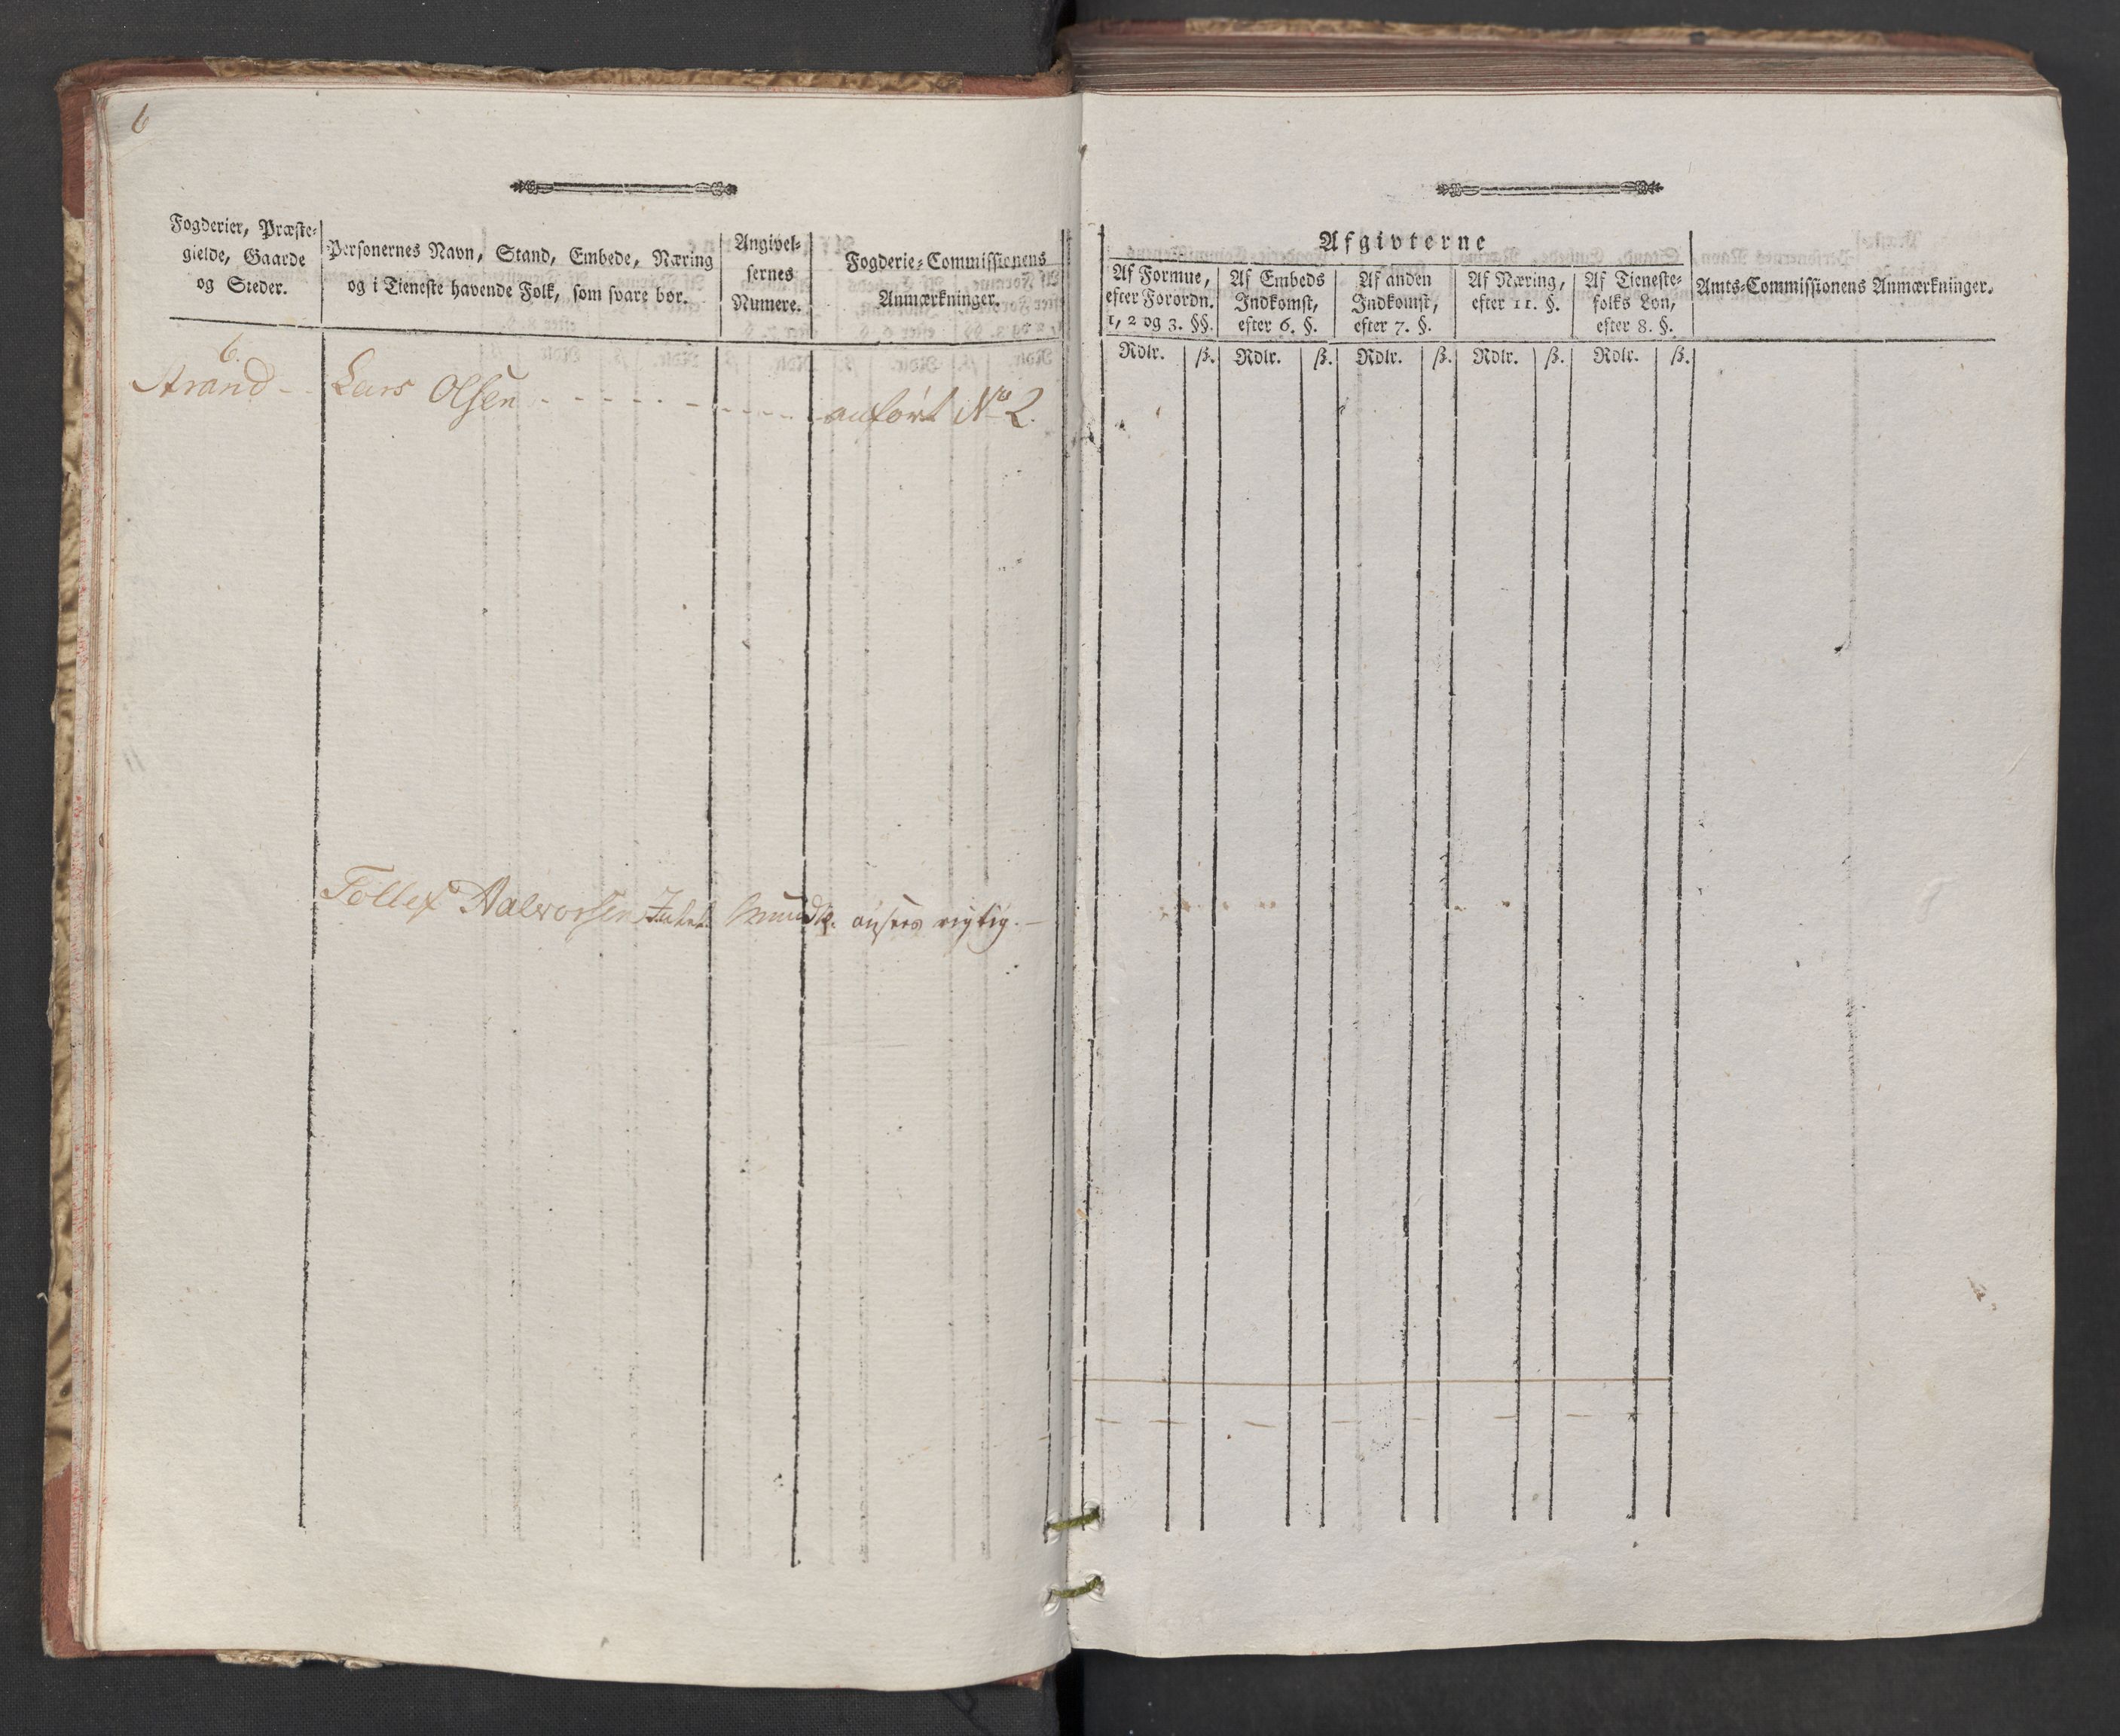 6
Fogderier, Præste-
gielde, Gaarde
og Steder.
Personernes Navn, Stand, Embede, Næring
og i Tieneste havende Folk, som svare bør.
Angivel-
sernes
Numere.
Fogderie-Commissionens
Anmærkninger.
6.
Strand - - Lars Olsen - - - - - - - - - anført No 2.
Tollef Aalvorsen Mundtl. ansees rigtig. -
Afgivterne
Af Formue,
efter Forordn.
1, 2 og 3. §§.
Af Embeds
Indkomst,
efter 6. §.
Af anden
Indkomst,
efter 7. §.
Af Næring,
efter 11. §.
Af Tieneste-
folks Løn,
efter 8. §.
Amts-Commissionens Anmærkninger.
Rdlr. ß. Rdlr. ß. Rdlr. ß. Rdlr. ß. Rdlr. ß.